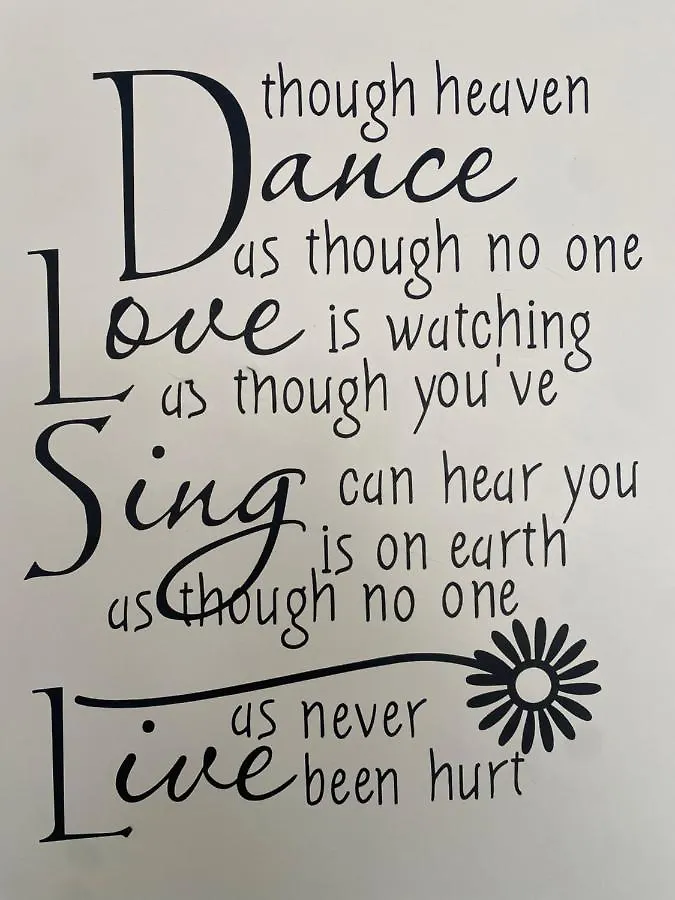 though heaven
Dance
as though no one
Love is watching
as though you've
Sing can hear you
is on earth
as though no one
as never
Live been hurt